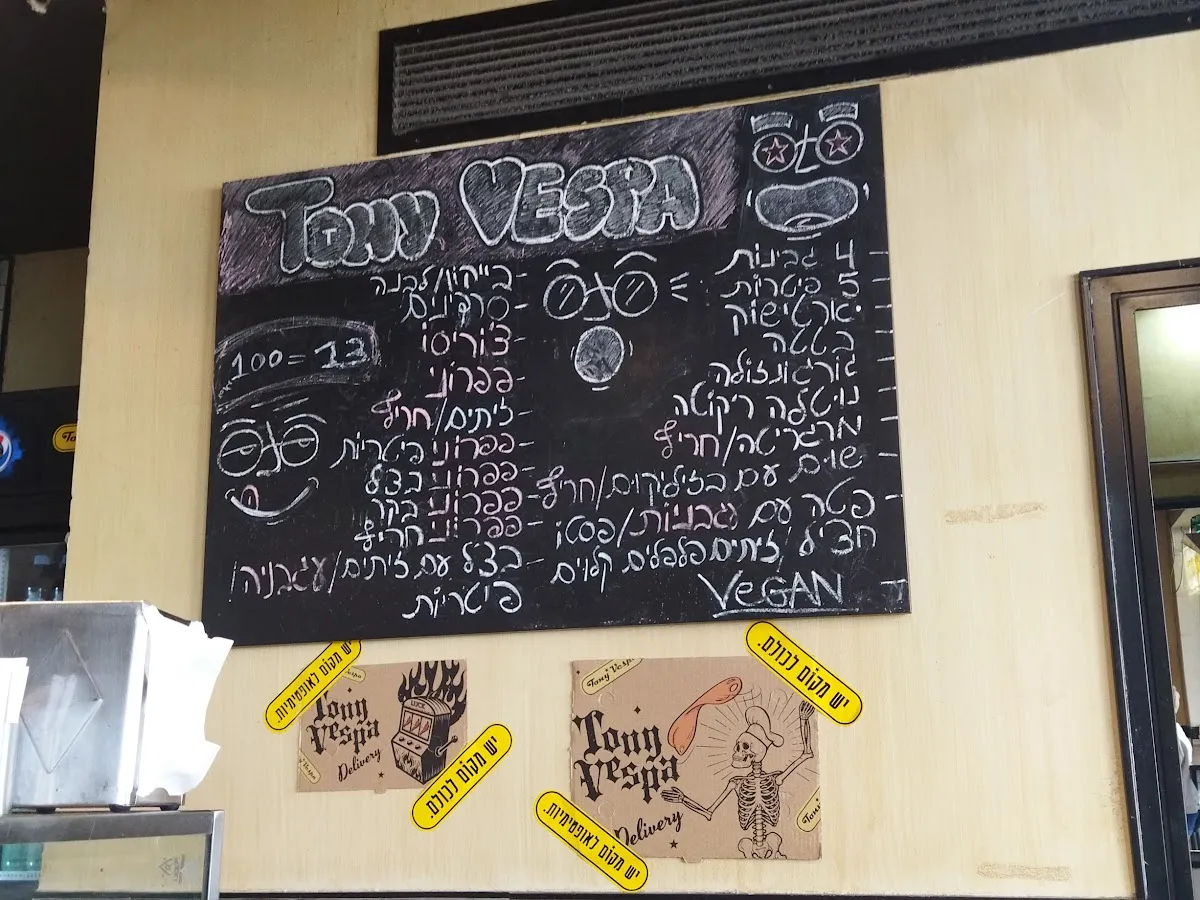 Tony VESPA
4 גבינות -
5 פיטריות
ארטישוק -
בטטה -
גורגונזולה -
נויטלה ריקוטה -
מרגריטה/חריף -
שום עם בזיליקום/חריף
פטה עם עגבניות/פסטו -
חציל/זיתים פלפלים קלויים
VEGAN
בייקון/לבנה -
סרדינים -
צ'וריסו -
פפרוני -
זיתים/חריף -
פפרוני פיטריות -
פפרוני בצל -
פפרוני בקר -
פפרוני חריף -
בצל עם זיתים/עגבניה/ -
פיטריות
100 = 13
יש מקום לאופטימיות.
Tony Vespa
Delivery
LUCK
יש מקום לכולם.
Tony Vespa
Tony Vespa
Delivery
יש מקום לכולם.
יש מקום לאופטימיות.
Tony